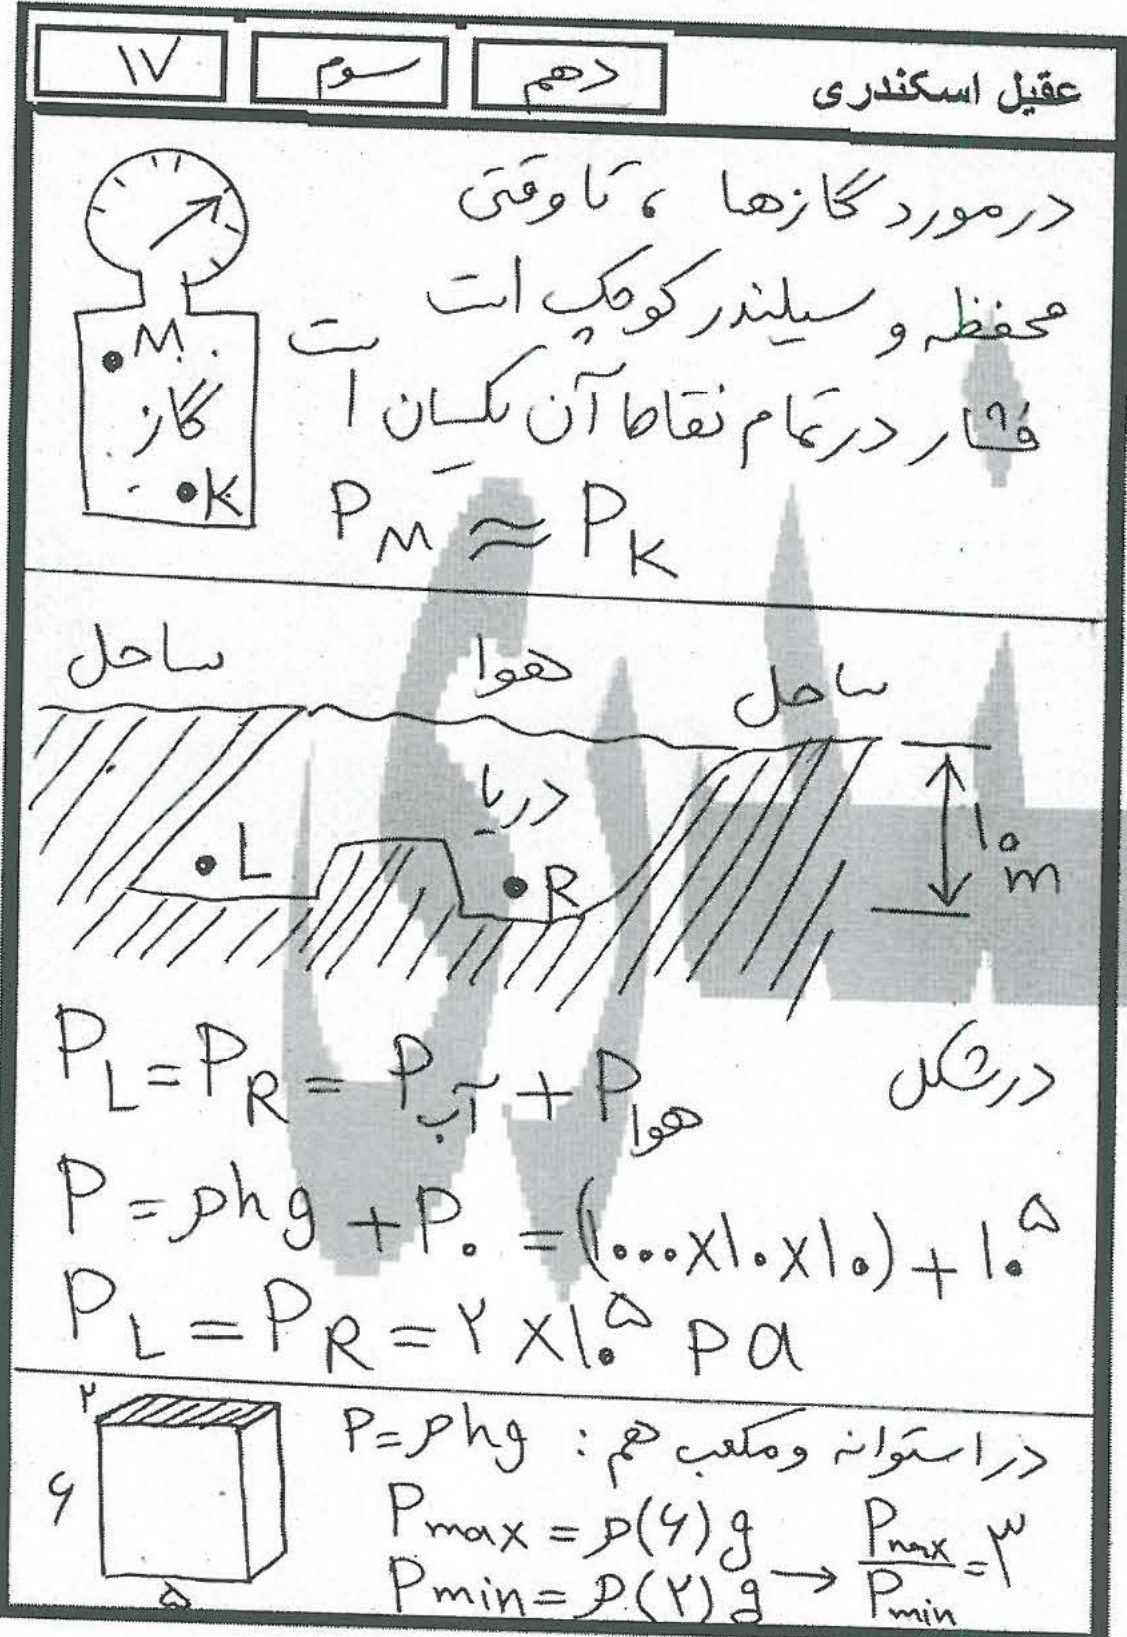 عقیل اسکندری
دهم
سوم
۱۷
در مورد گازها ، تا وقتی
محفظه و سیلندر کوچک است
فشار در تمام نقاط آن یکسان است
P_M ≈ P_K
M
گاز
K
ساحل
هوا
ساحل
دریا
L
R
۱۰ m
در شکل
P_L = P_R = P_آب + P_هوا
P = ρhg + P₀ = (۱۰۰۰×۱۰×۱۰) + ۱۰^۵
P_L = P_R = ۲×۱۰^۵ Pa
در استوانه و مکعب هم : P = ρhg
P_max = ρ(۶)g → P_max/P_min = ۳
P_min = ρ(۲)g
۲
۶
۵